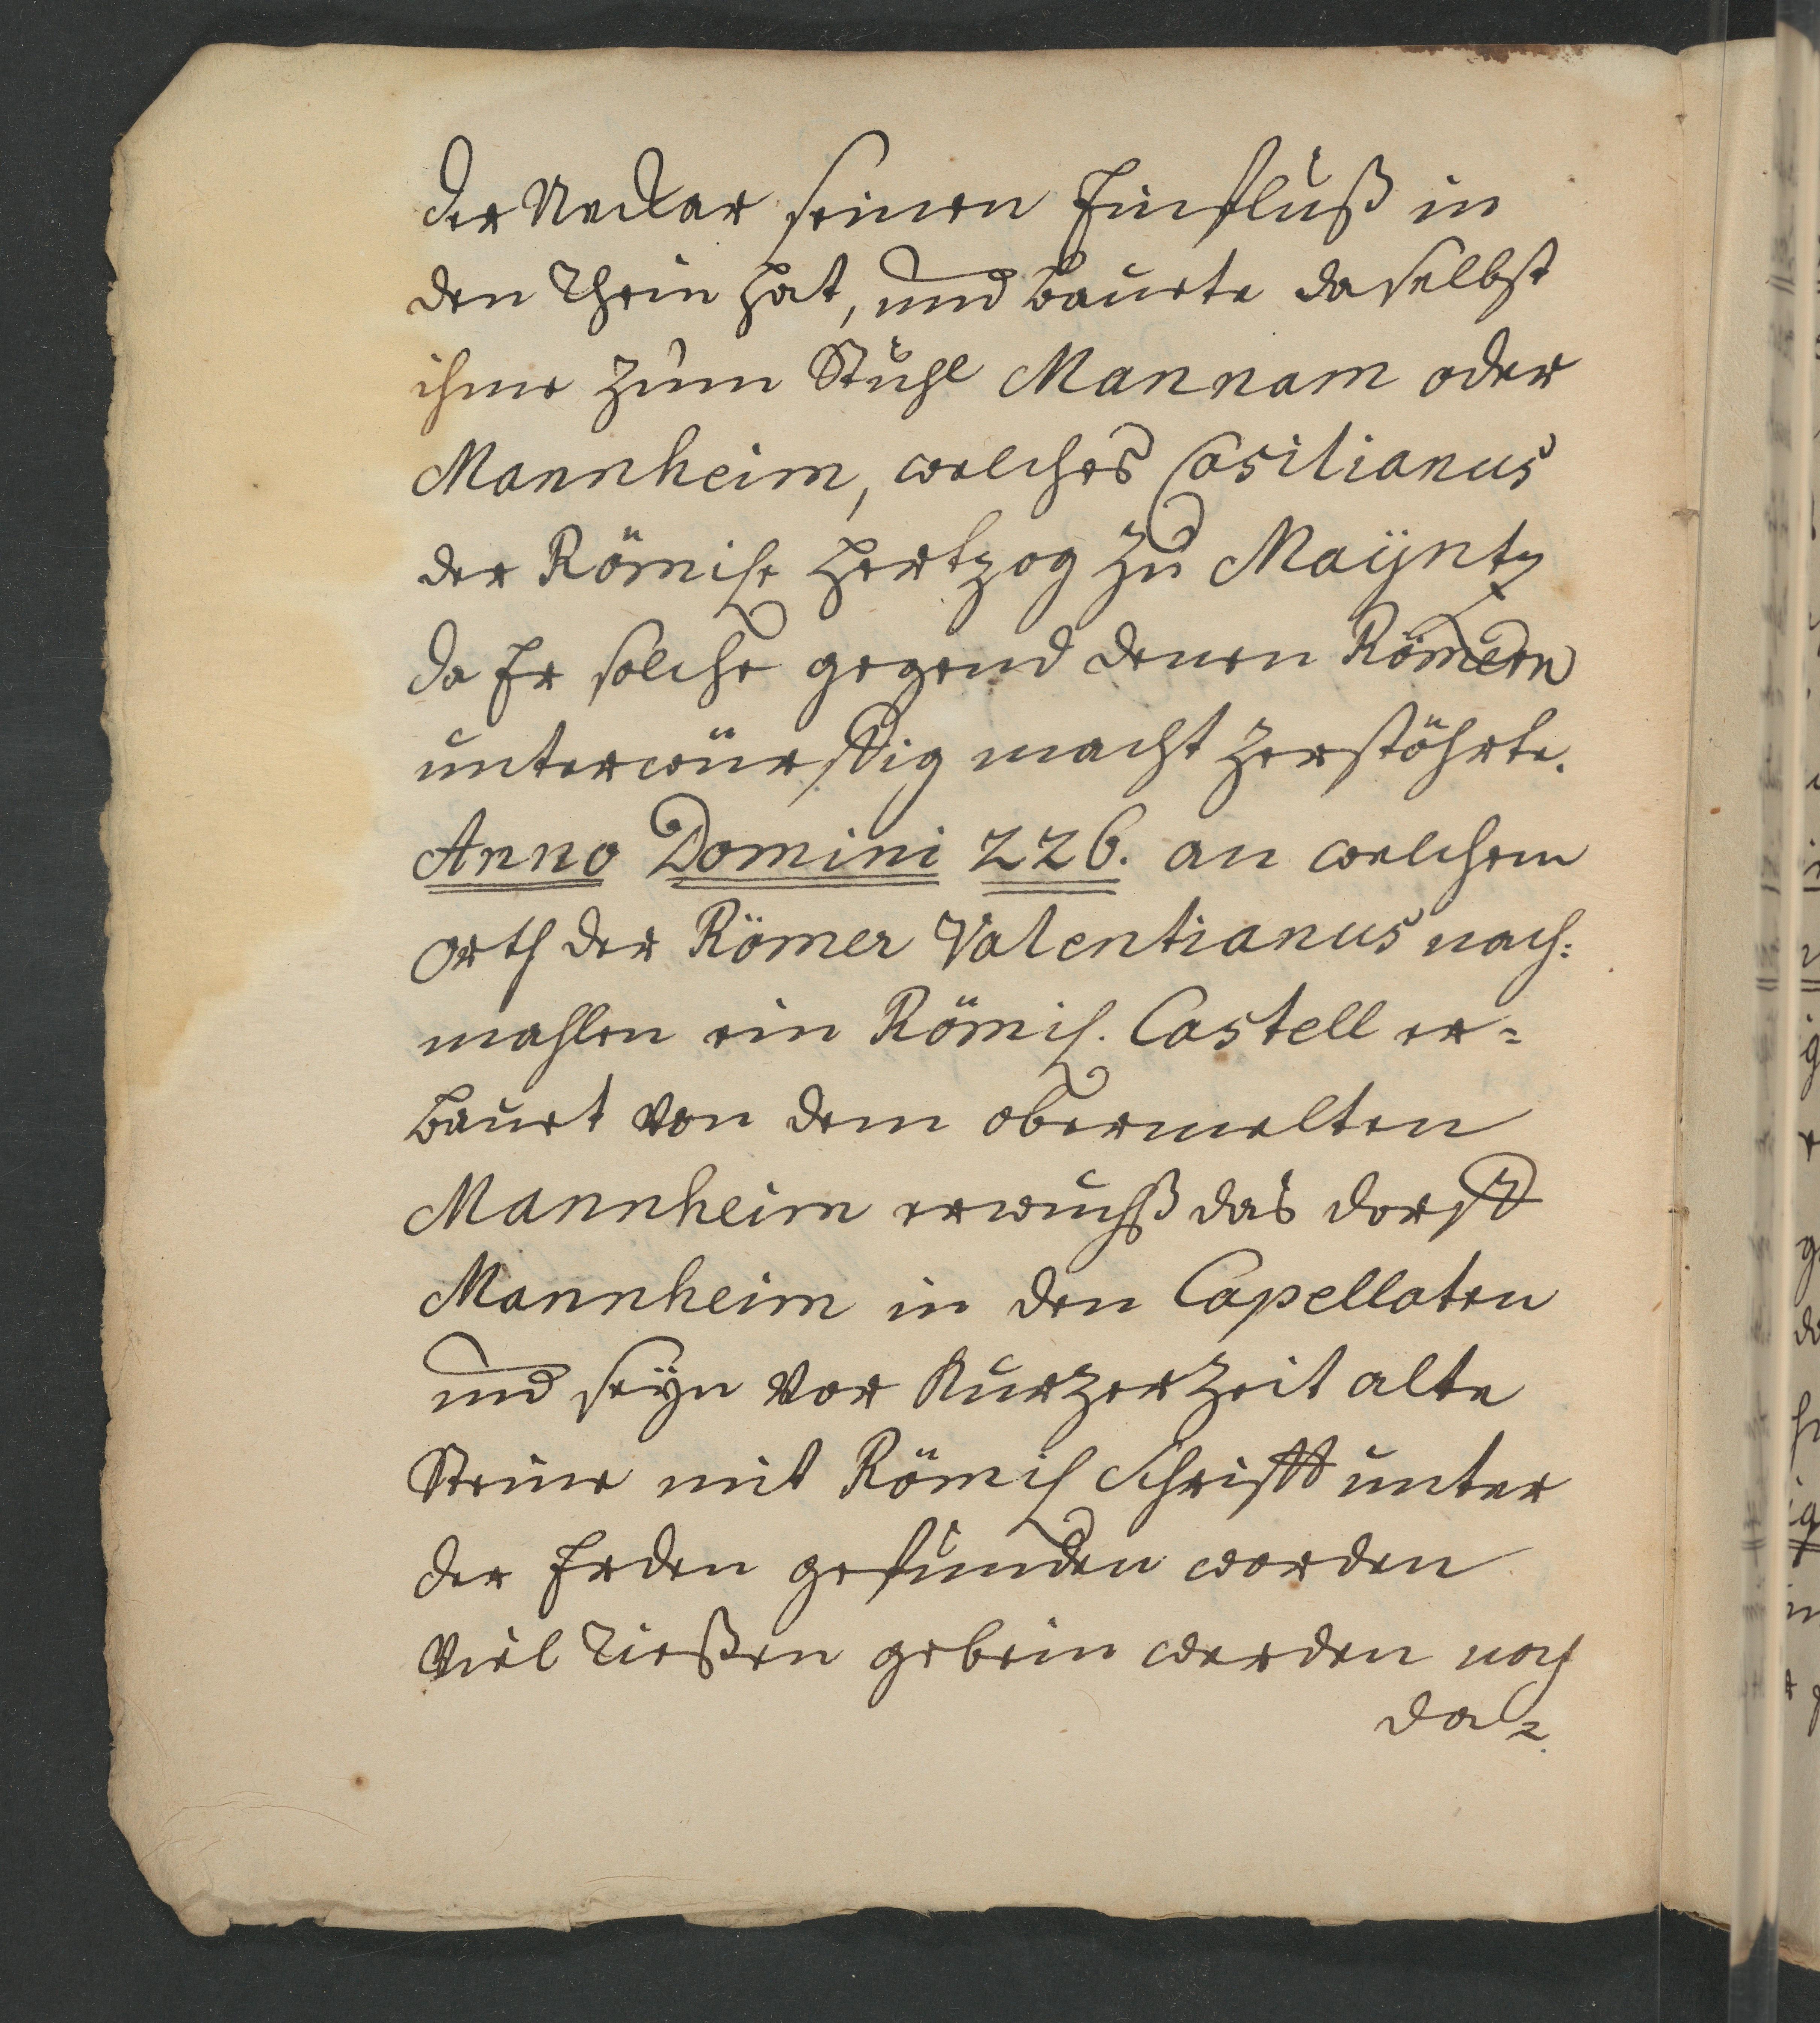 der Neckar seinen Einfluß in
den Rhein hat, und bauete daselbst
ihme zum Stuhl Mannam oder
Mannheim, welches Casilianus
der Römisch Hertzog zu Mayntz
da Er solche gegend denen Römern
unterwürffig macht zerstöhrte.
Anno Domini 226. an welchem
orth der Römer Valentianus nach:
mahlen ein Römisch. Castell er=
bauet von dem obermelten
Mannheim erwuchß das dorff
Mannheim in den Capellaten
und seyn vor Kurzer Zeit alte
Steine mit Römisch Schrifft unter
der Erden gefunden worden
viel Rießen gebein werden noch
da=